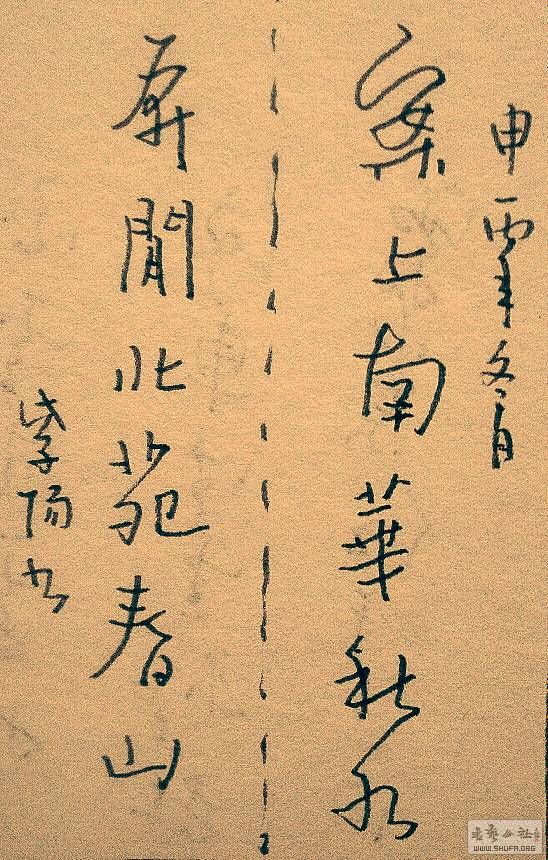 申丙年冬月
案上南華秋水
屏閒北苑春山
紫陽书
书艺公社
WWW.SHUFA.ORG